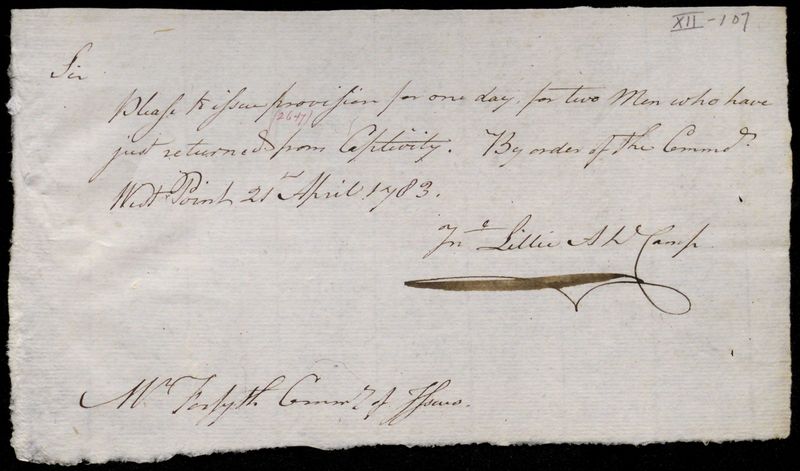 XII-107
Sir
Please to issue provision for one day, for two Men who have
(2647)
just returned from Captivity. By order of the Commdt.
West Point 21st April 1783.
Jno Lillie A D Camp
Mr Forsyth Commy of Issues.